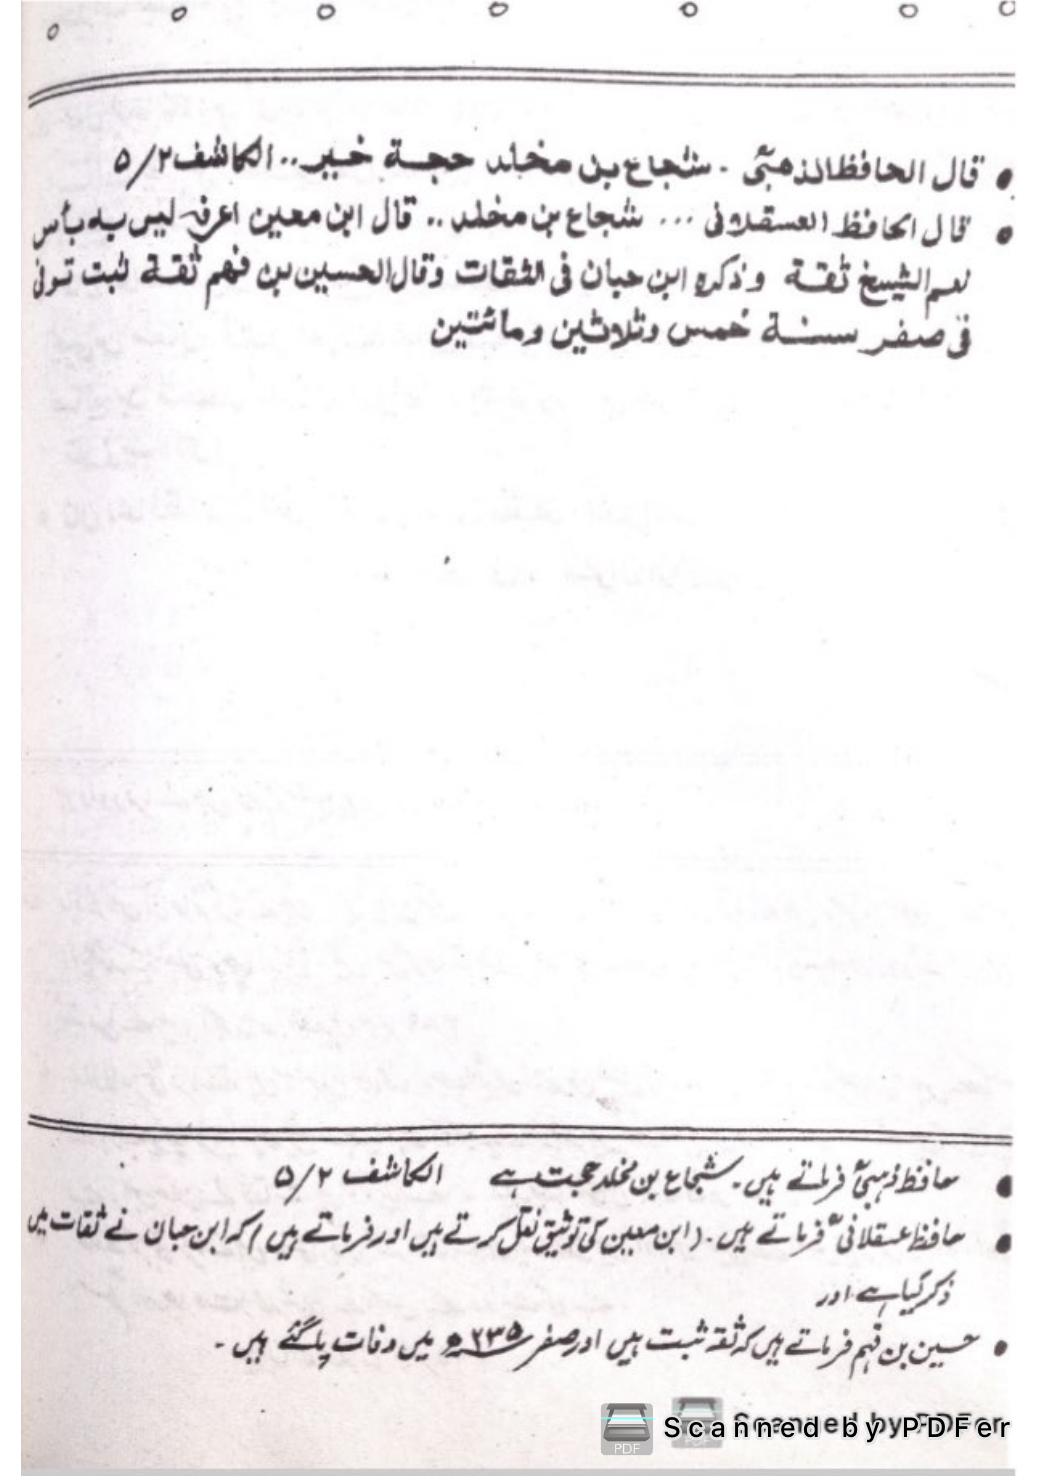 • قال الحافظ الذهبیؒ - شجاع بن مخلد حجة خير .. الكاشف ۵/۲
• قال الحافظ العسقلانی ... شجاع بن مخلد .. قال ابن معين اعرفه ليس به بأس
نعم الشيخ ثقة وذكره ابن حبان فی الثقات وقال الحسين بن فهم ثقة ثبت توفی
فی صفر سنة خمس وثلاثين ومائتين
• حافظ ذہبیؒ فرماتے ہیں۔ شجاع بن مخلد حجت ہے الکاشف ۵/۲
• حافظ عسقلانیؒ فرماتے ہیں۔ (ابن معین کی توثیق نقل کرتے ہیں اور فرماتے ہیں) کہ ابن حبان نے ثقات میں
ذکر کیا ہے اور
• حسین بن فہم فرماتے ہیں کہ ثقہ ثبت ہیں اور صفر ۲۳۵ھ میں وفات پا گئے ہیں ۔
Scanned by PDFer
Scanned by PDFer